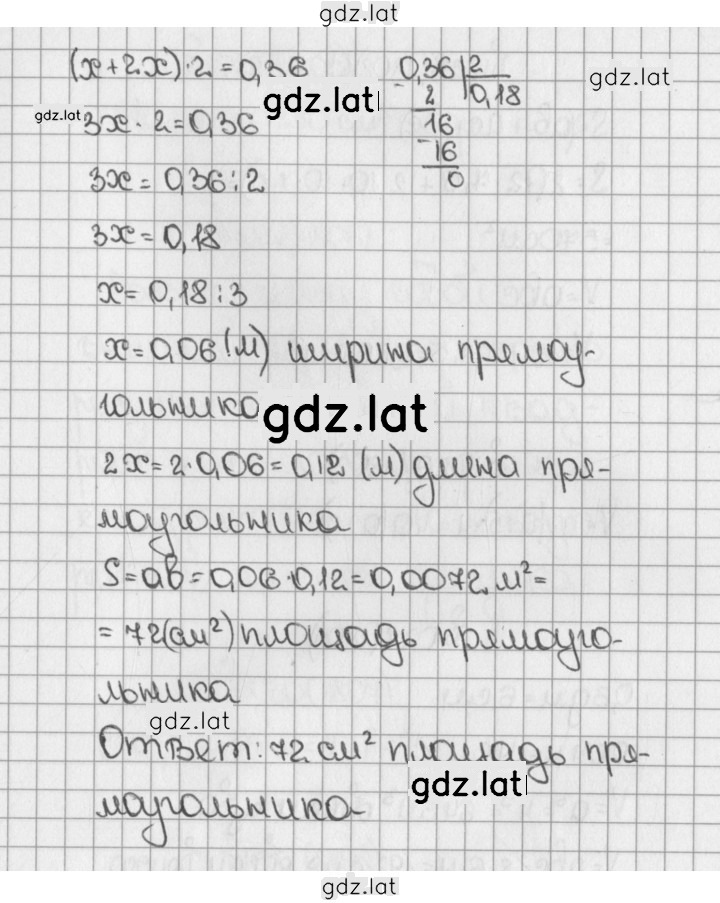 gdz.lat
(x+2x)·2=0,36 0,36 | 2
gdz.lat
2 0,18
gdz.lat
gdz.lat
3x·2=0,36 16
16
3x=0,36:2 0
3x=0,18
x=0,18:3
x=0,06(м) ширина прямоу-
гольника
gdz.lat
2x=2·0,06=0,12 (м) длина пря-
моугольника
S=ab=0,06·0,12=0,0072 м²=
=72(см²) площадь прямоуго-
льника
gdz.lat
Ответ: 72 см² площадь пря-
gdz.lat
моугольника.
gdz.lat